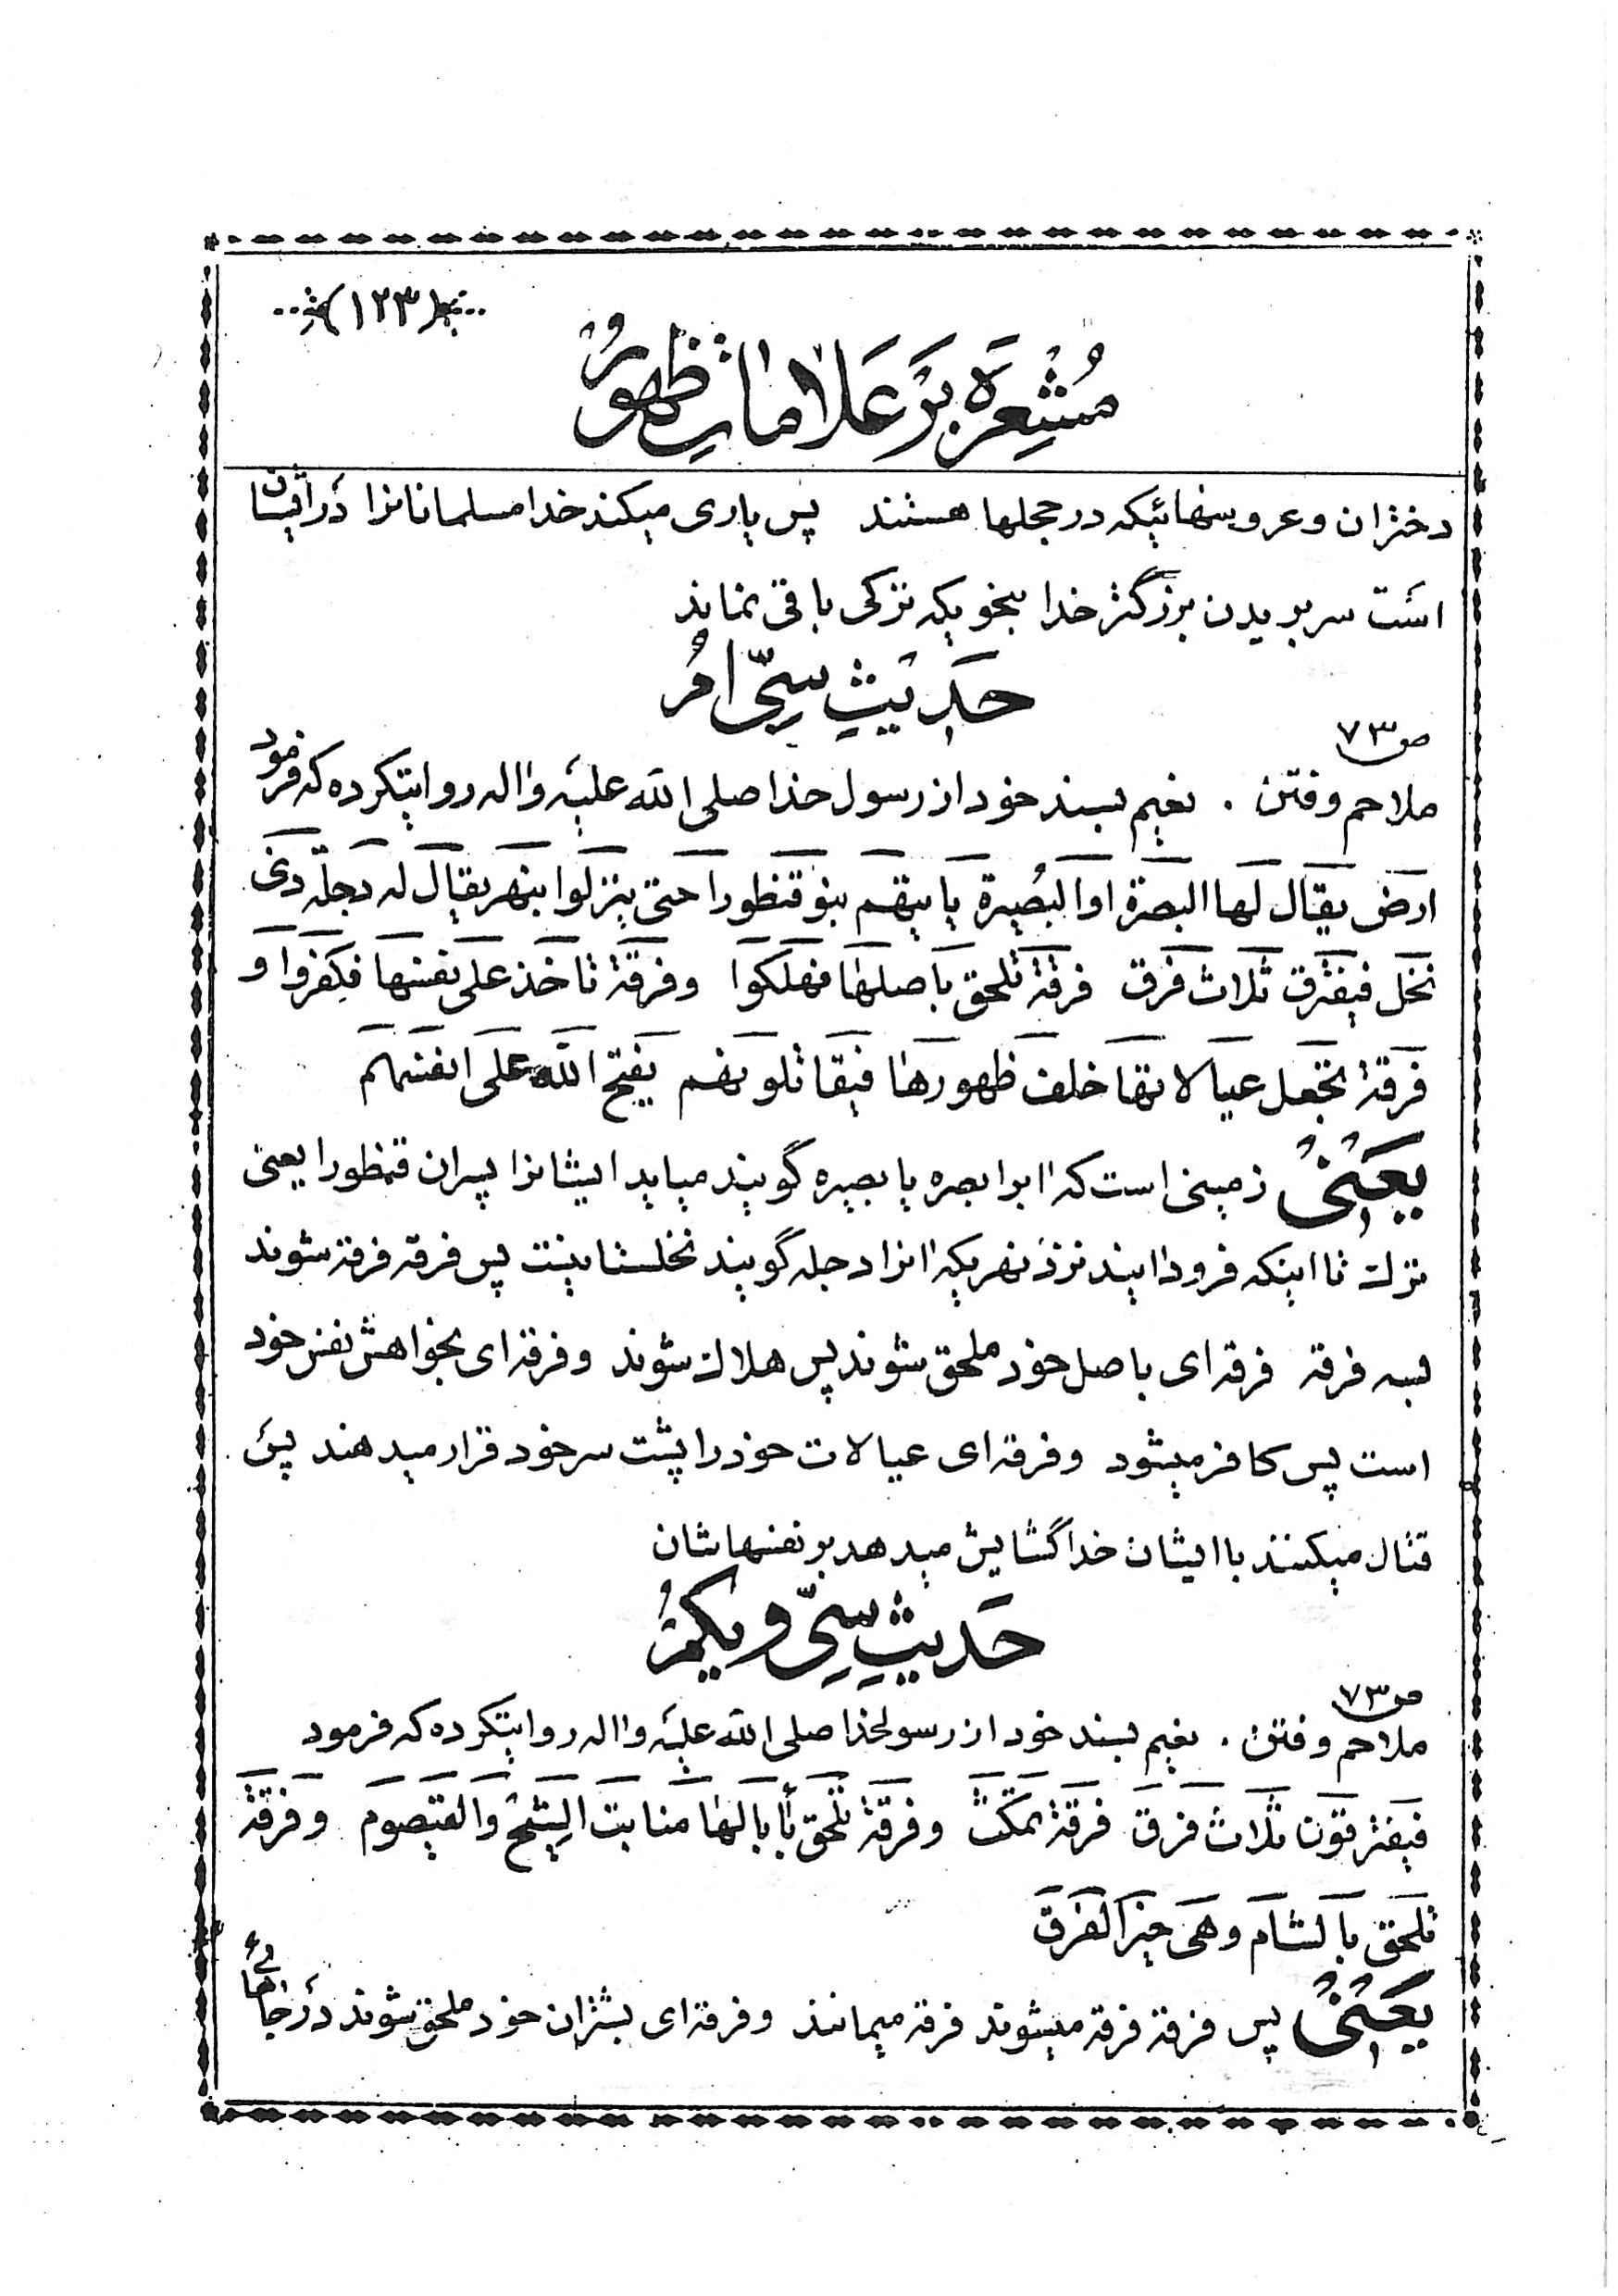 (۱۲۳)
مُشعِرَة بَر عَلامات ظهور
دختران و عروسهائیکه در حجلها هستند پس یاری میکند خدا مسلمانانرا در آنشان
است سر بریدن بزرگتر خدا بنحویکه ترکی باقی نماند
حَدیثِ سیّ‌ام
ص۷۳
ملاحم و فتن . نعیم بسند خود از رسول خدا صلی الله علیه واله روایتکرده که فرمود
ارض یقال لها البصرة او البُصیرة یاتیهم بنو قنطورا حتی ینزلوا بنهر یقال له دجلة ذی
نخل فیفترق ثلاث فرق فرقة تلحق باصلها فهلکوا وفرقة تاخذ علی نفسها فکفروا و
فرقة تجعل عیالاتها خلف ظهورها فیقاتلونهم یفتح الله علی انفسهم
یَعنی زمینی است که انرا بصره یا بصیره گویند میاید ایشانرا پسران قنطورا یعنی
ترك تا اینکه فرود ایند نزد نهریکه انرا دجله گویند نخلستانیست پس فرقه فرقه شوند
بسه فرقه فرقه‌ای باصل خود ملحق شوند پس هلاك شوند و فرقه‌ای بخواهش نفس خود
است پس کافر میشود و فرقه‌ای عیالات خود را پشت سر خود قرار میدهند پس
قتال میکنند با ایشان خدا گشایش میدهد بر نفسهاشان
حَدیث سیّ و یکم
ص۷۳
ملاحم و فتن . نعیم بسند خود از رسولخدا صلی الله علیه واله روایتکرده که فرمود
فیفترقون ثلاث فرق فرقة تمکث وفرقة تلحق بآبالها منابت الشیح والقیصوم وفرقة
تلحق بالشام وهی خیر الفرق
یَعنی پس فرقه فرقه میشوند فرقه میمانند و فرقه‌ای بشتران خود ملحق شوند در جاهای